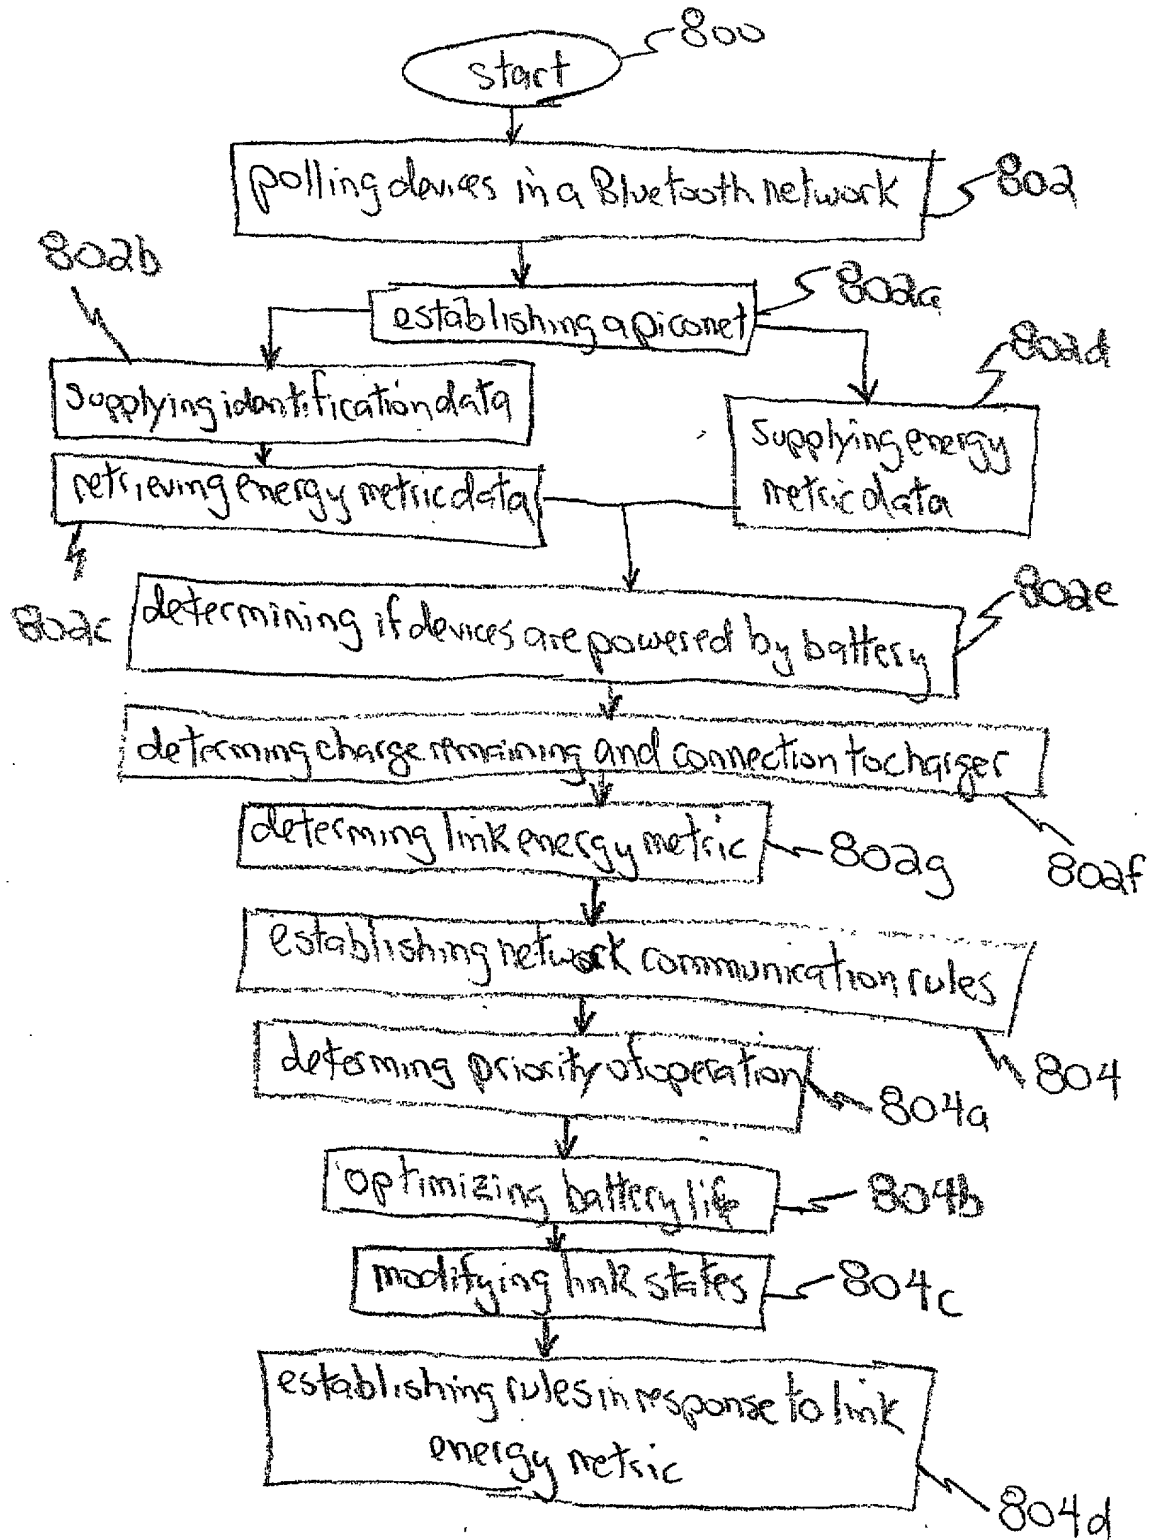 800
start
polling devices in a Bluetooth network
802
802b
establishing a piconet
802a
802d
supplying identification data
supplying energy
metric data
retrieving energy metric data
802c
determining if devices are powered by battery
802e
determing charge remaining and connection to charger
802f
determing link energy metric
802g
establishing network communication rules
804
determing priority of operation
804a
optimizing battery life
804b
modifying link states
804c
establishing rules in response to link
energy metric
804d